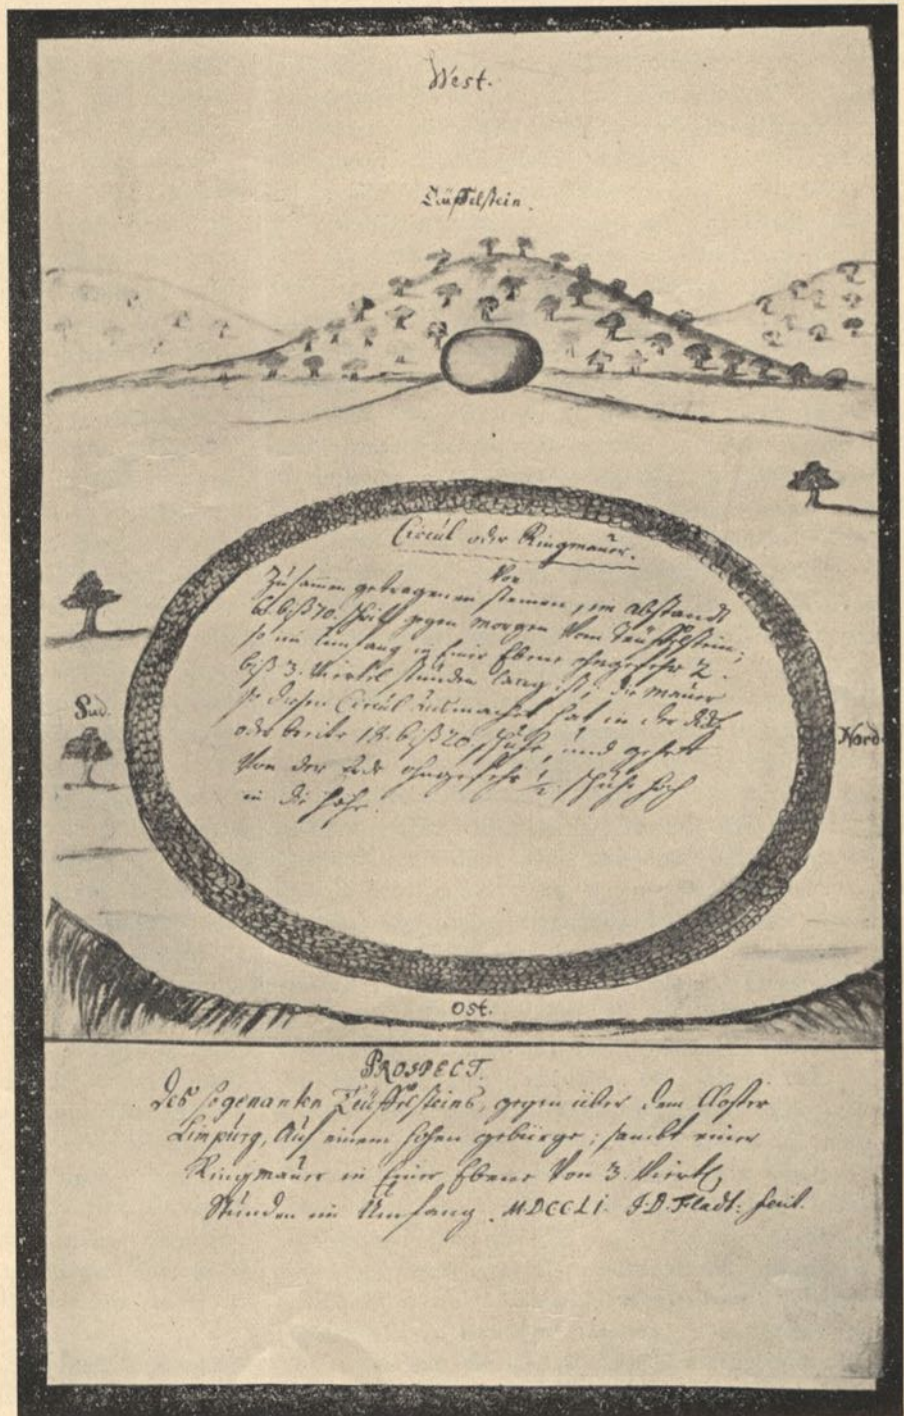 West.
Teüffelstein.
Circül oder Ringmauer.
Von
Zusammen getragenen steinen, im abstandt
biß 70. schritt gegen morgen vom Teüffelstein;
so im umfang in Einer Ebene ohngefehr 2.
biß 3. viertel stunden lang ist; die mauer
so diesen Circül ausmachet hat in der dicke
oder breite 18. biß 20 schuhe, und gehet
von der Erde ohngefehr ½ schuhe hoch
in die höhe.
Sud.
Nord
Ost.
PROSPECT.
Des sogenanten Teüffelsteins, gegen über dem Closter
Limpürg, Auf einem hohen gebürge; sambt einer
Ringmauer in Einer Ebene von 3. viertel
Stunden im Umfang. MDCCLI. J.D. Fladt: fecit.